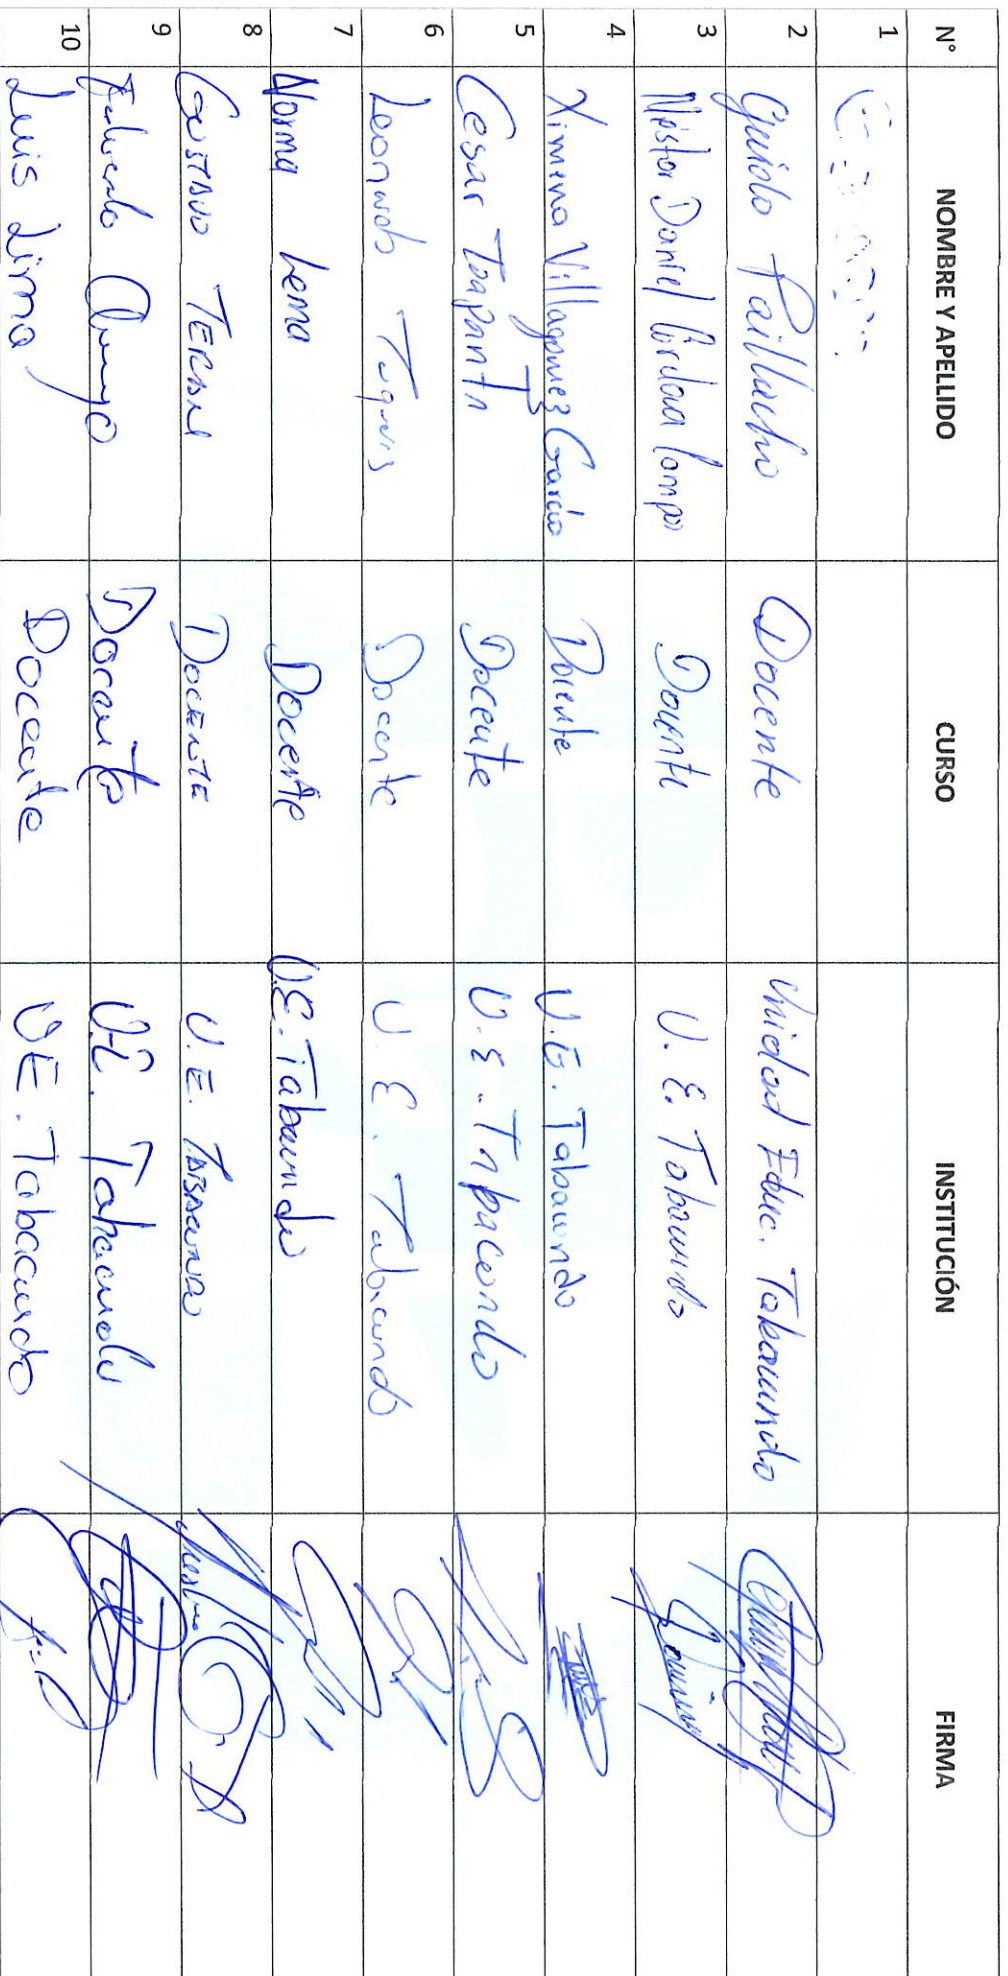 N° NOMBRE Y APELLIDO CURSO INSTITUCIÓN FIRMA
1
2 Guido Paillacho Docente Unidad Educ. Tabacundo
3 Néstor Daniel Córdova Docente U. E. Tabacundo
4 Ximena Villagomez García Docente U. E. Tabacundo
5 Cesar Toapanta Docente U. E. Tabacundo
6 Leonardo Docente U. E. Tabacundo
7 Norma Lema Docente U.E. Tabacundo
8 GUSTAVO TERAN DOCENTE U. E. TABACUNDO
9 Docente U.E. Tabacundo
10 Luis Lima Docente UE. Tabacundo